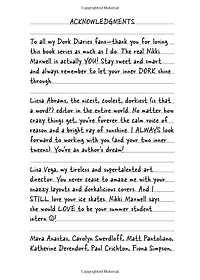 Copyrighted Material
ACKNOWLEDGMENTS
To all my Dork Diaries fans—thank you for loving
this book series as much as I do. The real Nikki
Maxwell is actually YOU! Stay sweet and smart
and always remember to let your inner DORK shine
through.
Liesa Abrams, the nicest, coolest, dorkiest (is that
a word?) editor in the entire world. No matter how
crazy things get, you're forever the calm voice of
reason and a bright ray of sunshine. I ALWAYS look
forward to working with you (and your two inner
tweens). You're an author's dream!
Lisa Vega, my tireless and supertalented art
director. You never cease to amaze me with your
snazzy layouts and dorkalicious covers. And I
STILL love your ice skates. Nikki Maxwell says
she would LOVE to be your summer student
intern ☺!
Mara Anastas, Carolyn Swerdloff, Matt Pantoliano,
Katherine Devendorf, Paul Crichton, Fiona Simpson,
Copyrighted Material